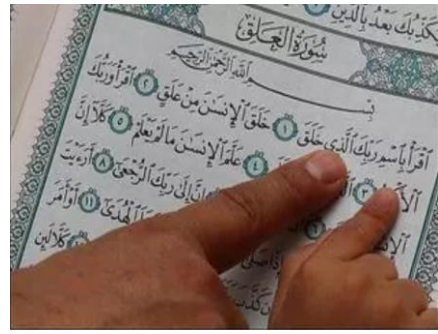 يُكَذِّبُكَ بَعْدُ بِٱلدِّينِ
سُورَةُ العَلَقِ
بِسْمِ ٱللَّهِ ٱلرَّحْمَٰنِ ٱلرَّحِيمِ
ٱقْرَأْ بِٱسْمِ رَبِّكَ ٱلَّذِي خَلَقَ ١ خَلَقَ ٱلْإِنسَٰنَ مِنْ عَلَقٍ ٢ ٱقْرَأْ وَرَبُّكَ
٣ ٤ عَلَّمَ ٱلْإِنسَٰنَ مَا لَمْ يَعْلَمْ ٥ كَلَّآ إِنَّ
٦ إِنَّ إِلَىٰ رَبِّكَ ٱلرُّجْعَىٰ ٨ أَرَءَيْتَ
إِذَا صَلَّىٰ ٱلْهُدَىٰ ١١ أَوْ أَمَرَ
إِن كَذَّبَ كَلَّا لَئِن